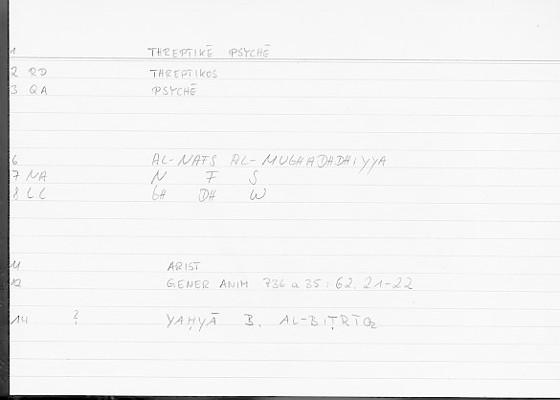 1 THREPTIKĒ PSYCHĒ
2 RD THREPTIKOS
3 QA PSYCHĒ
6 AL-NAFS AL-MUGHADHDHIYYA
7 NA N F S
8 LL GH DH W
11 ARIST
12 GENER ANIM 736 a 35 : 62. 21-22
14 ? YAḤYĀ B. AL-BIṬRĪQ